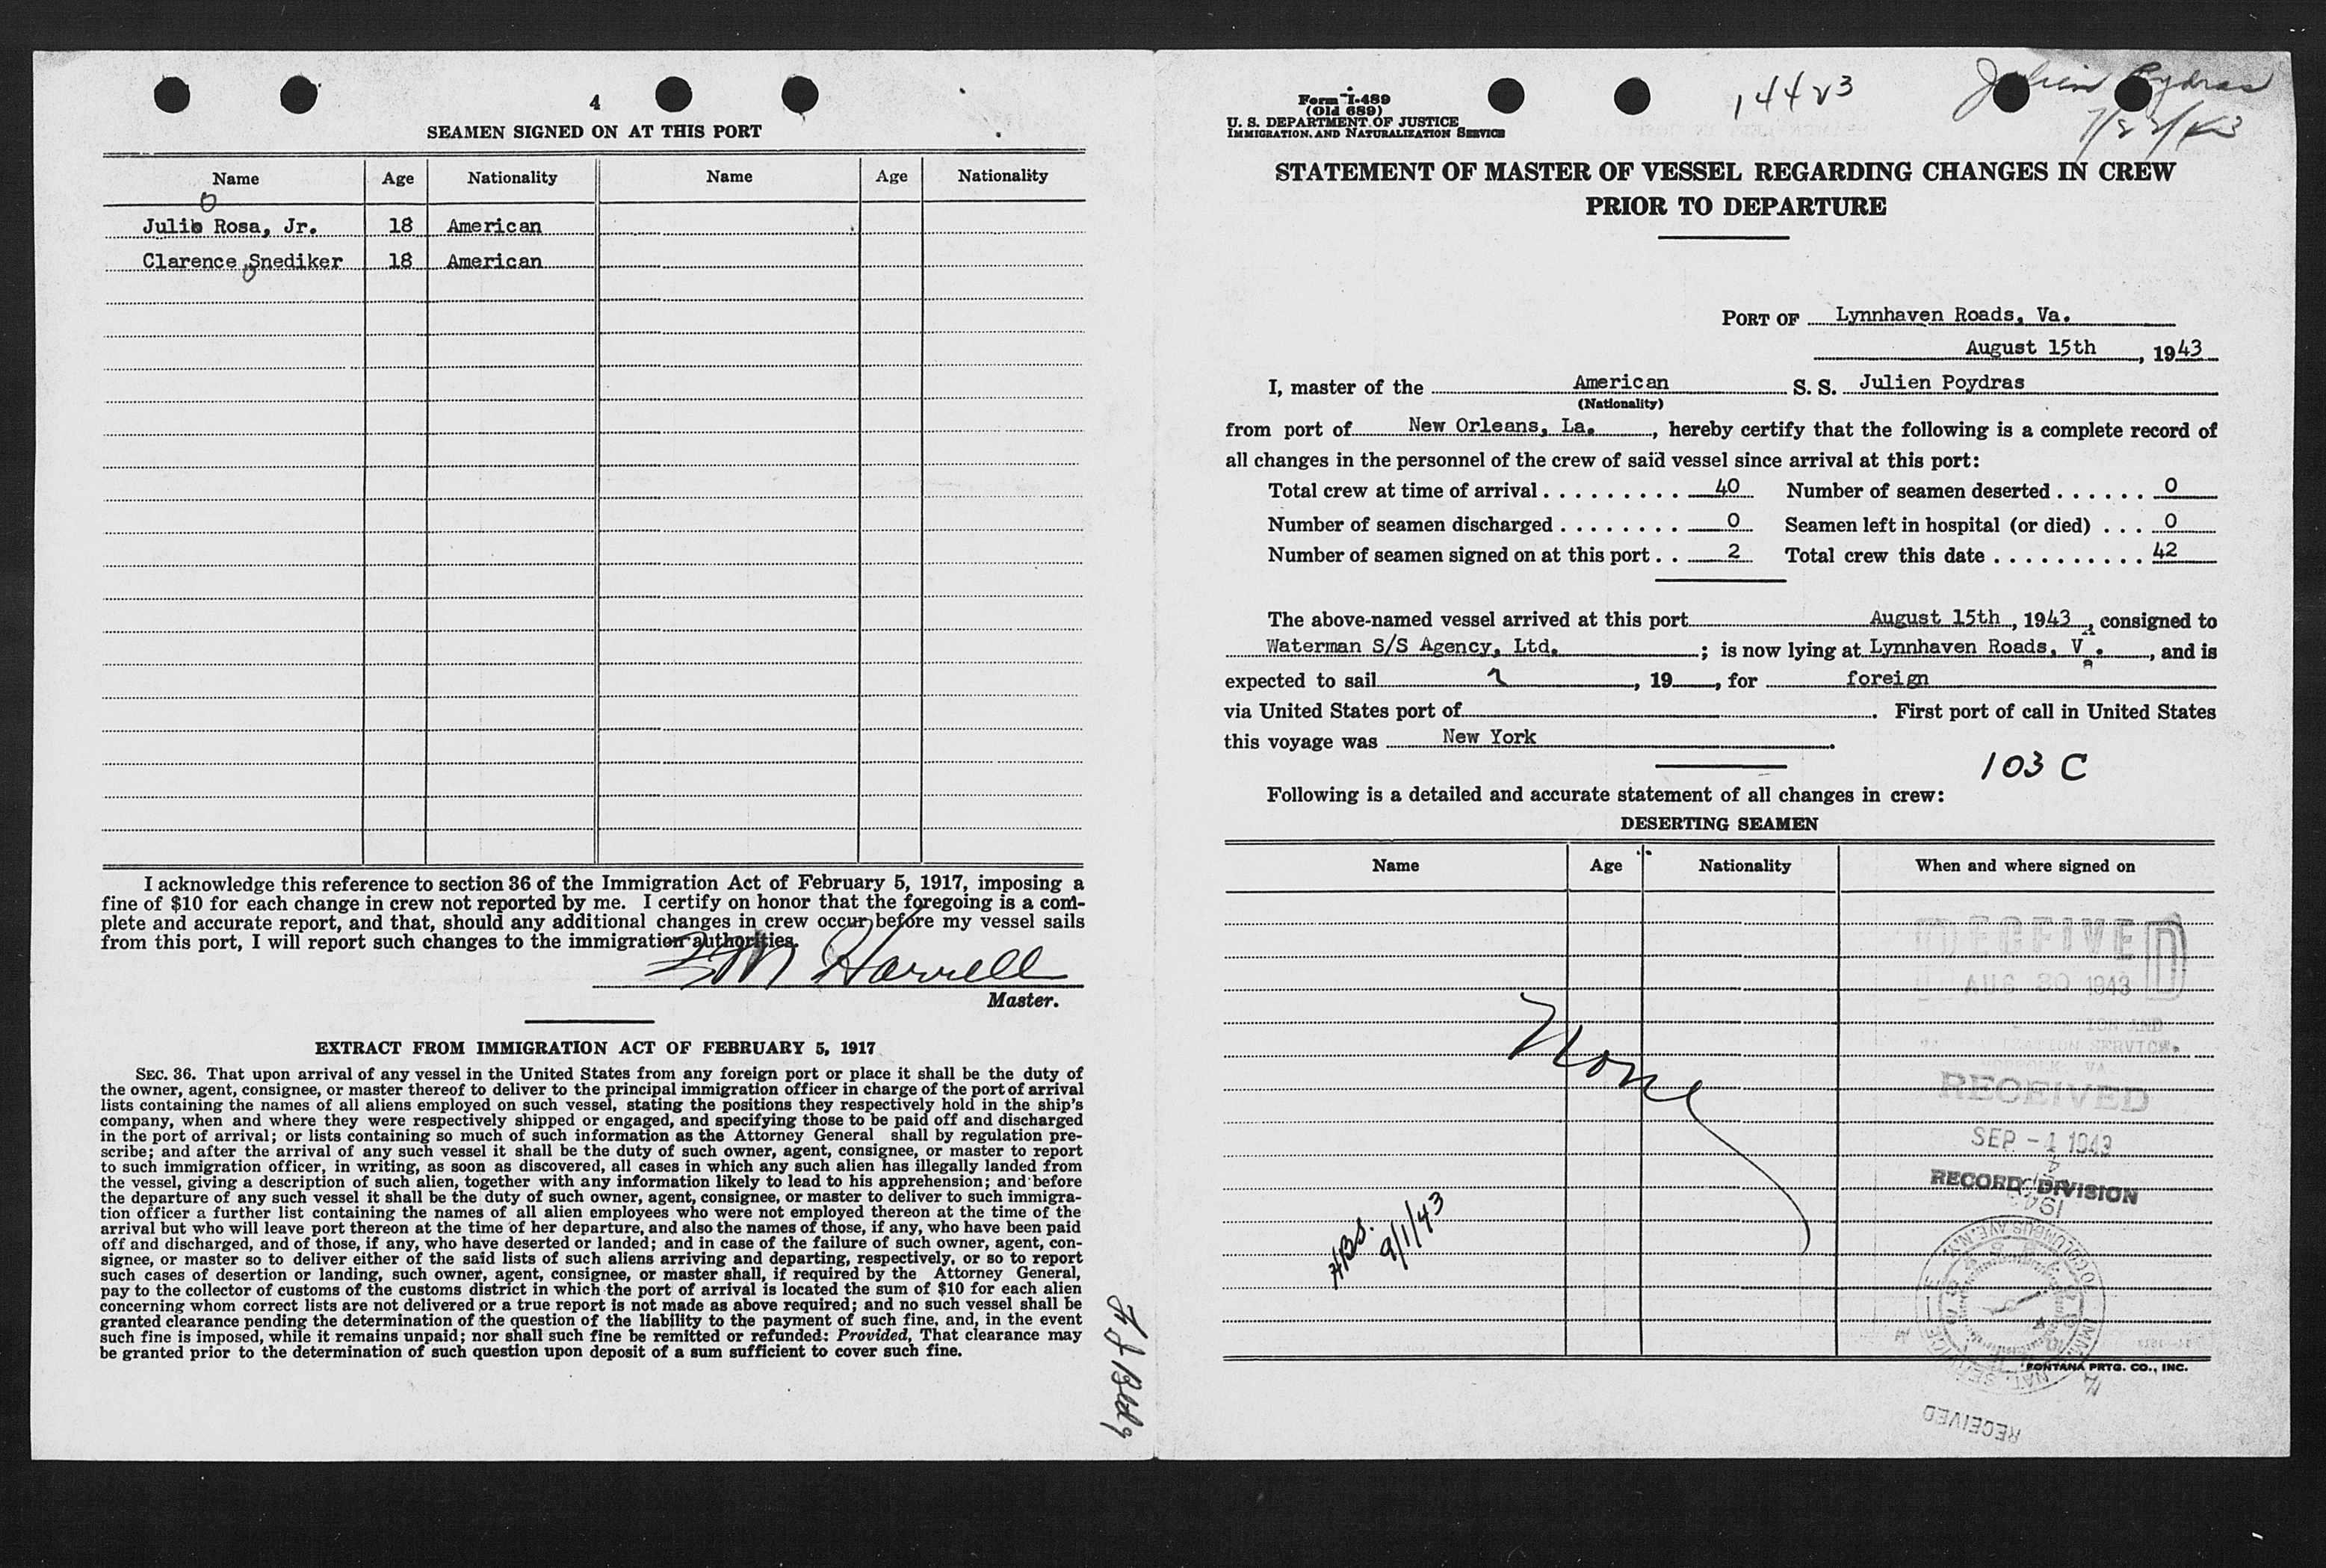 4
SEAMEN SIGNED ON AT THIS PORT
Name Age Nationality Name Age Nationality
Julio Rosa, Jr. 18 American
Clarence Snediker 18 American
I acknowledge this reference to section 36 of the Immigration Act of February 5, 1917, imposing a
fine of $10 for each change in crew not reported by me. I certify on honor that the foregoing is a com-
plete and accurate report, and that, should any additional changes in crew occur before my vessel sails
from this port, I will report such changes to the immigration authorities.
Harrell
Master.
EXTRACT FROM IMMIGRATION ACT OF FEBRUARY 5, 1917
SEC. 36. That upon arrival of any vessel in the United States from any foreign port or place it shall be the duty of
the owner, agent, consignee, or master thereof to deliver to the principal immigration officer in charge of the port of arrival
lists containing the names of all aliens employed on such vessel, stating the positions they respectively hold in the ship's
company, when and where they were respectively shipped or engaged, and specifying those to be paid off and discharged
in the port of arrival; or lists containing so much of such information as the Attorney General shall by regulation pre-
scribe; and after the arrival of any such vessel it shall be the duty of such owner, agent, consignee, or master to report
to such immigration officer, in writing, as soon as discovered, all cases in which any such alien has illegally landed from
the vessel, giving a description of such alien, together with any information likely to lead to his apprehension; and before
the departure of any such vessel it shall be the duty of such owner, agent, consignee, or master to deliver to such immigra-
tion officer a further list containing the names of all alien employees who were not employed thereon at the time of the
arrival but who will leave port thereon at the time of her departure, and also the names of those, if any, who have been paid
off and discharged, and of those, if any, who have deserted or landed; and in case of the failure of such owner, agent, con-
signee, or master so to deliver either of the said lists of such aliens arriving and departing, respectively, or so to report
such cases of desertion or landing, such owner, agent, consignee, or master shall, if required by the Attorney General,
pay to the collector of customs of the customs district in which the port of arrival is located the sum of $10 for each alien
concerning whom correct lists are not delivered or a true report is not made as above required; and no such vessel shall be
granted clearance pending the determination of the question of the liability to the payment of such fine, and, in the event
such fine is imposed, while it remains unpaid; nor shall such fine be remitted or refunded: Provided, That clearance may
be granted prior to the determination of such question upon deposit of a sum sufficient to cover such fine.
Form I-489
(Old 689)
U. S. DEPARTMENT OF JUSTICE
IMMIGRATION AND NATURALIZATION SERVICE
Julien Poydras
STATEMENT OF MASTER OF VESSEL REGARDING CHANGES IN CREW
PRIOR TO DEPARTURE
PORT OF Lynnhaven Roads, Va.
August 15th, 1943
I, master of the American S. S. Julien Poydras
(Nationality)
from port of New Orleans, La., hereby certify that the following is a complete record of
all changes in the personnel of the crew of said vessel since arrival at this port:
Total crew at time of arrival . . . . . . . . . . 40 Number of seamen deserted . . . . . . 0
Number of seamen discharged . . . . . . . . 0 Seamen left in hospital (or died) . . . 0
Number of seamen signed on at this port . . 2 Total crew this date . . . . . . . . . . 42
The above-named vessel arrived at this port August 15th, 1943, consigned to
Waterman S/S Agency, Ltd. ; is now lying at Lynnhaven Roads, Va., and is
expected to sail ?, 19 , for foreign
via United States port of . First port of call in United States
this voyage was New York.
103 C
Following is a detailed and accurate statement of all changes in crew:
DESERTING SEAMEN
Name Age Nationality When and where signed on
None
RECEIVED
AUG 30 1943
RECEIVED
SEP -1 1943
RECORD DIVISION
9/1/43
FONTANA PRTG. CO., INC.
RECEIVED